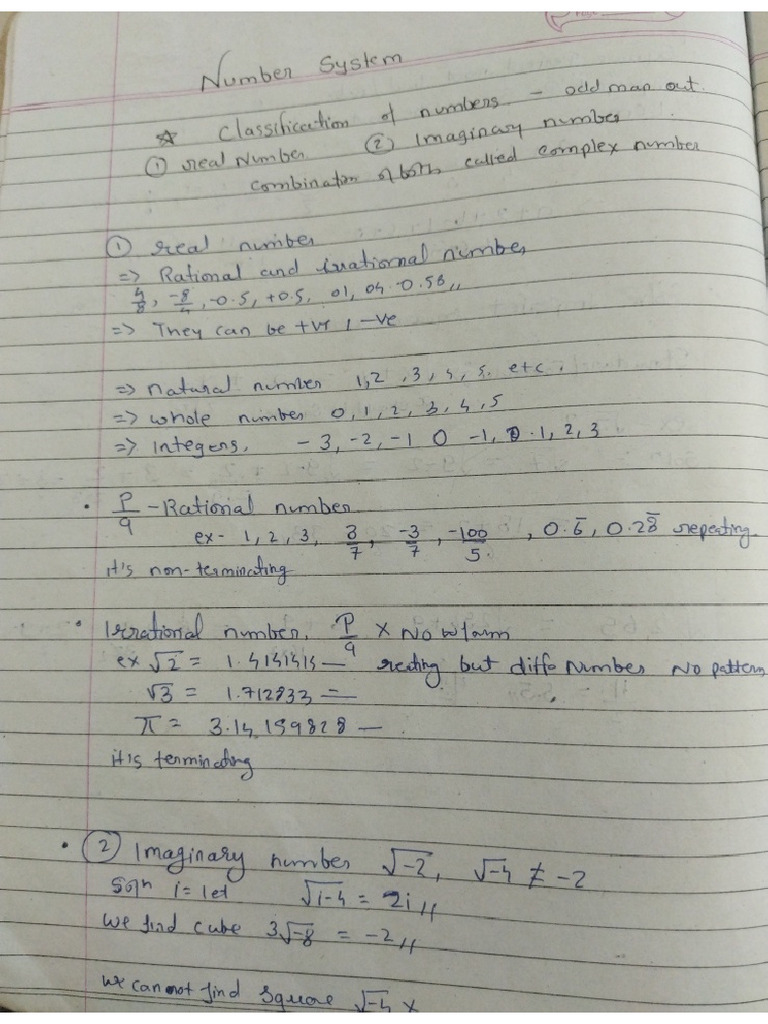 Number System
☆ Classification of numbers - odd man out.
① real Number ② Imaginary number
combination of both called complex number
① real number
=> Rational and irrational number
4/8, -8/4, -0.5, +0.5, 01, 04 -0.58,,
=> They can be +ve, -ve
=> natural number 1,2,3,4,5. etc.
=> whole number 0,1,2,3,4,5
=> Integers, -3, -2, -1 0 -1, 0.1, 2, 3
• P/q - Rational number
ex- 1, 2, 3, 3/7, -3/7, -100/5, 0.6̅, 0.28̅ repeating
it's non-terminating
• Irrational number, P/q x No
ex √2 = 1.4141414— but diffe Number No pattern
√3 = 1.712833 =
π = 3.14,159828 —
it's terminating
• ② Imaginary number √-2, √-4 ≠ -2
Soln i = let √1-4 = 2i,,
we find cube 3√-8 = -2,,
we cannot find square √-4 x